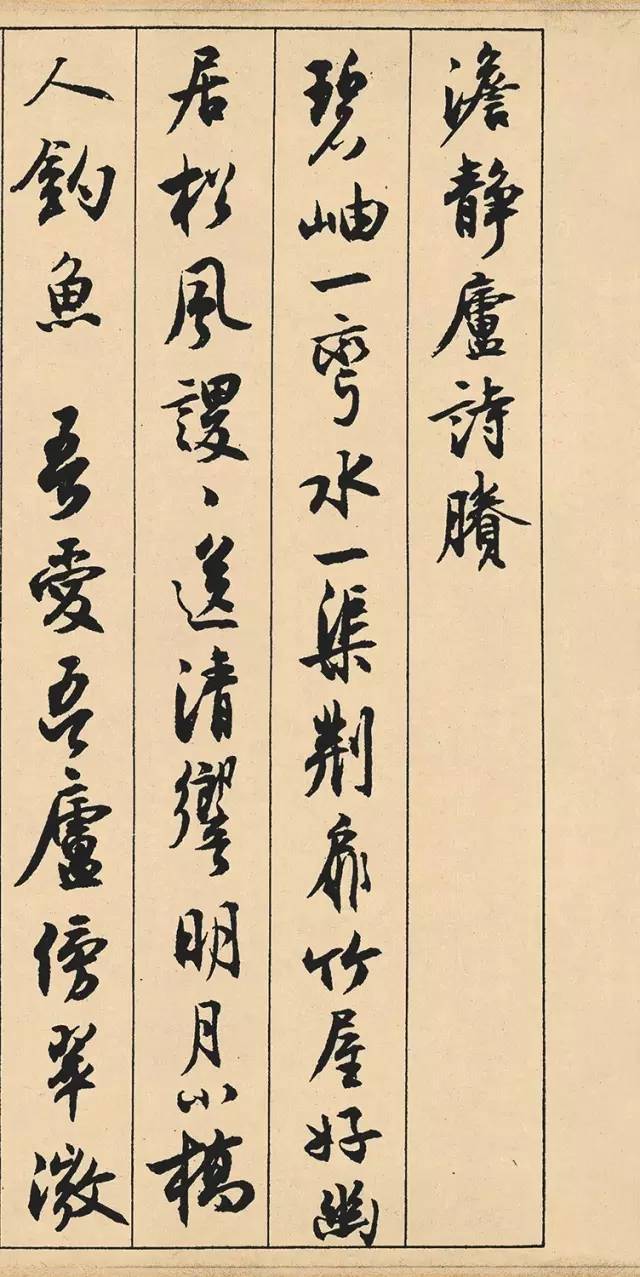 澹静廬詩賸
碧岫一彎水一渠荆扉竹屋好幽
居松風謖〻送清響明月小橋
人釣魚 吾愛吾廬傍翠微